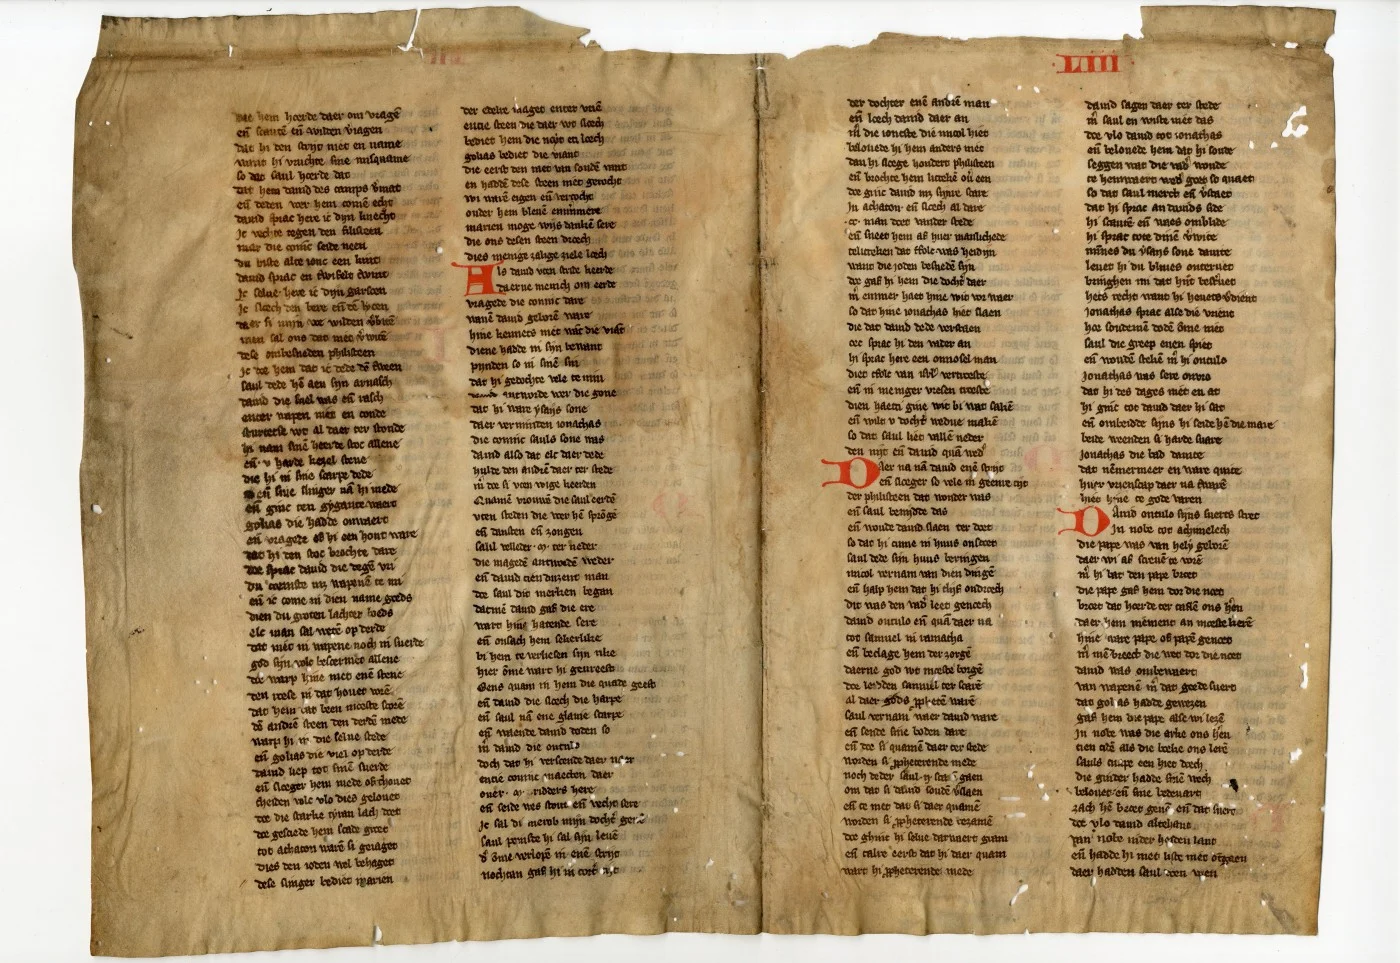 LIII
die hem hoerde daer om vragē
eñ scautē eñ wilden vragen
dat hi den strijt met en name
want hi vruchte sine misquame
so dat saul hoerde dat
dat hem dauid des camps v̄mat
eñ deden voer hem comē echt
dauid sprac here ic dijn knecht
Ic vechte tegen den filisteen
maer die conīc seide neen
du biste alte ionc een kint
dauid sprac en twifelt twint
Ic salue here ic dijn garsoen
Ic sloech den bere eñ dē lyoen
daer si mijn vee wilden v̄bitē
men sal ons dat niet v̄witē
dese onbesneden philisteen
Ic doe hem dat ic dede dē tween
saul dede hē aen sijn arnasch
dauid die snel was eñ rasch
enter wapen niet en conde
sturtetse wt al daer ter stonde
hi nam sinē heerde stoc allene
eñ v harde kezel stene
die hi in sine scarpe dede
eñ sine slinger nā hi mede
eñ ginc ten gygante waert
golias die hadde onwaert
eñ vragede of hi een hont ware
dat hi den stoc brochte dare
doe sprac dauid die degē vri
du coemste mz wapene te mi
eñ ic come in dien name goeds
dien du groten lachter doeds
elc man sal wetē op derde
dat niet in wapene noch in swerde
god sijn volc beschermet allene
doe warp hine met enē stene
den roese in dat houet vorē
dat hem dat been moeste scorē
dē andrē steen den derdē mede
warp hi in die selue stede
eñ golias die viel op derde
dauid liep tot sinē swerde
eñ sloeger hem mede of thouet
theiden volc vlo dies gelouet
doe die starke tyran lach doet
doe gesciede hem scade groet
tot achaton warē si geiaget
dies den ioden wel behaget
dese slinger bediet marien
der edelre maget enter vriē
entie steen die daer wt vloech
bediet hem die noit en loech
golias bediet die viant
die eerst den niet van sondē vant
en hadde dese steen niet gewrocht
wi warē eigen eñ vercocht
onder hem bleuē emmermere
marien moge wijs danken sere
die ons desen steen droech
dies menige zalige ziele loech
Als dauid vten stride keerde
daerne menich om eerde
vragede die conīc dare
wanē dauid geborē ware
hine kennets niet wāt die viāt
diene hadde in sijn bewant
pijnden so in sinē sin
dat hi gedochte vele te min
antworde voer die gone
dat hi ware ysays sone
daer verminden ionathas
die conīc sauls sone was
dauid also dat elc daer dede
hulde den andrē daer ter stede
m̄ doe si vten wige keerden
Quamē vrouwē die saul eerdē
vten steden die voer hē sprōgē
eñ dansten eñ zongen
saul velleder ·m· ter neder
die magede antwordē weder
eñ dauid tien duzent man
doe saul dit merken began
datmē dauid gaf die ere
wart hine hatende sere
eñ ontsach hem sekerlike
bi hem te verliesen sijn rike
hier ōme wart hi gevreest
Eens quam in hem die quade geest
eñ dauid die sloech die harpe
eñ saul nā ene glauie scarpe
eñ waende dauid doden so
m̄ dauid die ontulo
doch dat hi versoende daer naer
entie conīc maecten daer
ouer ·m· ridders here
eñ seide wes stout eñ vecht sere
Ic sal di merob mijn docht̄ geuē
saul peinsde hi sal sijn leuē
d' ōme verliesē in enē strijt
nochtan gaf hi in cort
der dochter enē andrē man
eñ loech dauid daer an
m̄ die ioncste die micol hiet
beloued hi hem anders niet
dan hi sloege hondert philisteen
eñ brochte hem litekē ouer een
doe ginc dauid mz sijnre scare
In achaton eñ sloech al dare
·cc· man doet vander stede
eñ sneet hem af huer manlichede
telitteken dat tfolc was heidijn
want die ioden besneden sijn
doe gaf hi hem die docht̄ daer
m̄ emmer haet hine wie wz waer
so dat hine ionathas hiet slaen
die dat dauid dede verstaen
oec sprac hi den vader an
hi sprac here een onnosel man
diet tfolc van isrl' vertroeste
eñ in meniger vresen troeste
dien haetti gine wit bi wat sakē
eñ wilt v docht̄ wedue makē
so dat saul liet vallē neder
den nijt eñ dauid quā wed̄
Daer na nā dauid enē strijt
eñ sloeger so vele in geenre tijt
der philisteen dat wonder was
eñ saul benijdde das
eñ woude dauid slaen ter doet
so dat hi cume in huus ontscoet
saul dede sijn huus beringen
micol vernam van dien dingē
eñ halp hem dat hi tlijf ontdroech
dit was den vad̄ leet genoech
dauid ontulo eñ quā daer na
tot samuel in ramacha
eñ beclage hem der zorgē
daerne god wt moeste borgē
doe leidden samuel ter scarē
al daer gods ꝓphetē warē
saul vernam waer dauid ware
eñ sende sine boden dare
eñ doe si quamē daer ter stede
worden si ꝓpheterende mede
noch deder saul gaen
om dat si dauid soudē v̄slaen
eñ te met dat si daer quamē
worden si ꝓpheterende tezamē
doe ghinc hi selue darwaert gram
eñ talre eerst dat hi daer quam
wart hi ꝓpheterende mede
dauid sagen daer ter stede
m̄ saul en wiste niet das
doe vlo dauid tot ionathas
eñ belouede hem dat hi soude
seggen wat die vad̄ woude
te hemwaert wed̄ goet so quaet
so dat saul merct eñ v̄staet
dat hi sprac an dauids side
hi scautē eñ waes onblide
hi sprac tote dinē v̄wite
minnes du ysays sone dauite
leuet hi du bliues onteruet
bringhen mi dat hijt besteruet
hets recht want hi heuets v̄dient
Ionathas sprac als die vrient
hoe soudemē dodē ōme niet
saul die greep enen spiet
eñ woudē stekē m̄ hi ontulo
Ionathas was sere onvro
dat hi des dages niet en at
hi ginc tot dauid daer hi sat
eñ ombeidde sijns hi seide hē die mare
beide weenden si harde sware
Ionathas die bad dauite
dat nēmermeer en ware quite
huer vrienscap daer na twarē
hiet hine te gode varen
Dauid ontulo sijns sweerts doet
In nobe tot achymelech
die pape was van hely geborē
daer wi af screuē te vorē
m̄ hi bat den pape broet
die pape gaf hem dor die noet
broet dat hoerde ter taflē ons hēn
daer hem nēment an moeste kerē
hine ware pape of papē genoet
m̄ mē breect die wet dor die noet
dauid was ombewaert
van wapenē m̄ dat goede swert
dat golias hadde gewezen
gaf hem die pape alse wi lezē
In nobe was die arke ons hēn
tien tidē als die boeke ons lerē
sauls cnape een hiet doech
die ginder hadde sinē vloech
belouet eñ sine bedeuart
zach hē broet geuē eñ dat swert
doe vlo dauid altehant
van nobe inder heiden lant
eñ hadde hi met liste niet ontgaen
daer hadden saul doen